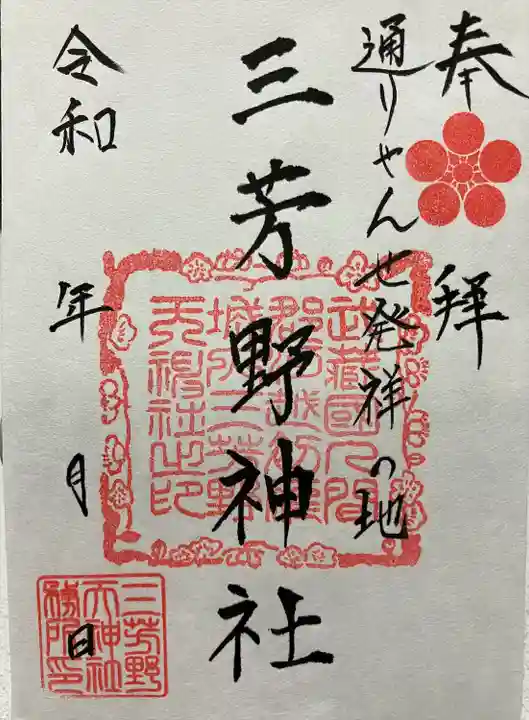 奉拝
通りゃんせ発祥の地
三芳野神社
武藏國入間
城内三芳野
天神社之印
令和 年 月 日
三芳野
天神社
務所印